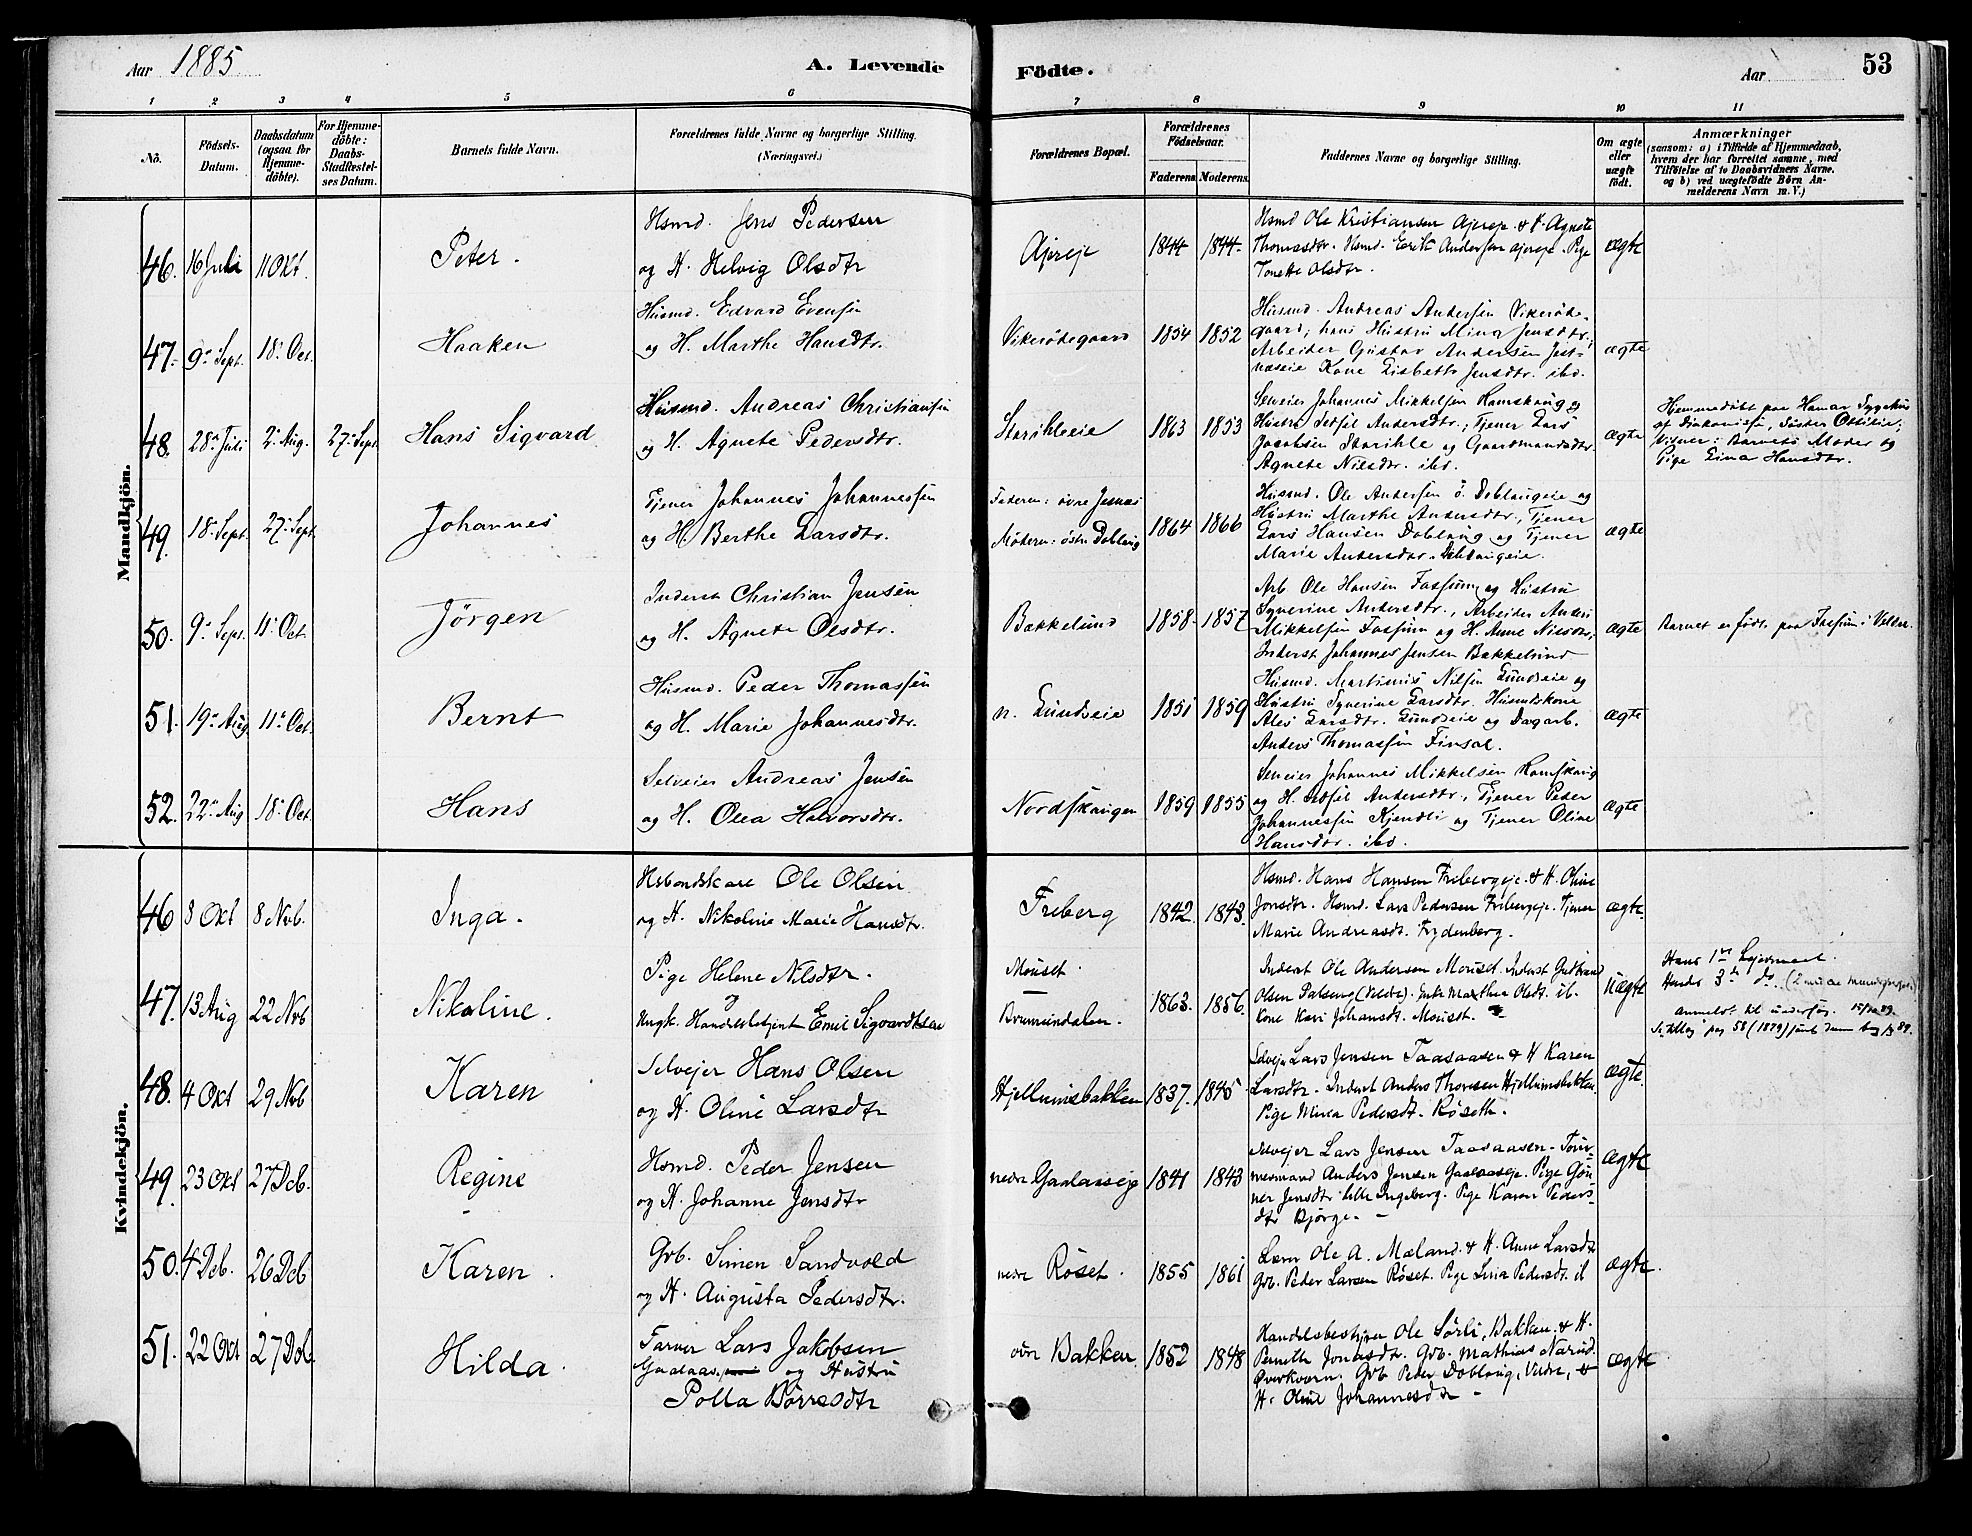 Aar 1885.
A. Levende
Födte.
Aar
53
1 2 3 4 5 6 7 8 9 10 11
No.
Födsels-
Datum.
Daabsdatum
(ogsaa for
Hjemme-
döbte).
For Hjemme-
döbte:
Daabs-
Stadfæstel-
ses Datum.
Barnets fulde Navn.
Forældrenes fulde Navne og borgerlige Stilling.
(Næringsvei.)
Forældrenes Bopæl.
Forældrenes
Födselsaar.
Faderens
Moderens.
Faddernes Navne og borgerlige Stilling.
Om ægte
eller
uægte
födt.
Anmærkninger
(saasom: a) i Tilfælde af Hjemmedaab,
hvem der har forrettet samme, med
Tilföielse af to Daabsvidners Navne.
og b) ved uægtefödte Börn An-
melderens Navn m. V.)
Mandkjön.
46. 16 Juli 11 Okt. Peter.
Hsmd. Jens Pedersen
og H. Helvig Olsdtr
Ajereje 1844 1844
Hsmd Ole Kristiansen Ajereje & H. Agnete
Thomasdtr. Hsmd. Erik Andersen Ajereje. Pige
Tonette Olsdtr.
ægte
47. 9. Sept. 18. Oct. Haaken
Husmd. Edvard Evensen
og H. Marthe Hansdtr.
Vikerødegaard 1854 1852
Husmd. Andreas Andersen Vikerøde-
gaard; hans Hustru Mina Jensdtr.,
Arbeider Gustav Andersen Jest-
næseie Kone Lisbeth Jensdtr. ibd.
ægte
48. 28. Juli 2. Aug. 27. Sept. Hans Sigvard
Husmd. Andreas Christiansen
og H. Agnete Pedersdtr.
Starihleeie 1863 1853
Selveier Johannes Mikkelsen Ramskoug og
Hustru Sedsel Andersdtr., Tjener Lars
Jacobsen Starihle og Gaardmandsdtr.
Agnete Nilsdtr. ibd.
ægte
Hjemmedöbt paa Hamar Sygehus
af Diakonisse, Söster Ottilie;
Vidner: Barnets Moder og
Pige Lina Hansdtr.
49. 18. Sept. 27. Sept. Johannes
Tjener Johannes Johannessen
og H. Berthe Larsdtr.
Faderen: övre Jesnæs
Moderen: östre Doblaug
1864 1866
Husmd. Ole Andersen ö. Doblaugeie og
Hustru Marthe Andersdtr., Tjener
Lars Hansen Doblaug og Tjener
Marie Andersdtr. Doblaugeie.
ægte
50. 9. Sept. 11. Oct. Jörgen
Inderst Christian Jensen
og H. Agnete Olsdtr.
Bækkelund 1858. 1857
Arb. Ole Hansen Fossum og Hustru
Syverine Andersdtr., Arbeider Anders
Mikkelsen Fossum og H. Anne Nilsdtr,
Inderst Johannes Jensen Bækkelund
ægte
Barnet er födt paa Fossum i Veldre.
51. 19. Aug. 11. Oct. Bernt
Husmd. Peder Thomassen
og H. Marie Johannesdtr.
n. Lundeeie 1851 1859
Husmd. Martinius Nilsen Lundeeie og
Hustru Syverine Larsdtr. Husmdskone
Ales Larsdtr. Lundeeie og Dagarb.
Anders Thomassen Finsal.
ægte
52. 22. Aug 18. Oct. Hans
Selveier Andreas Jensen
og H. Olea Halvorsdtr.
Nordskaugen 1859 1855
Selveier Johannes Mikkelsen Ramskaug
og H. Sedsel Andersdtr., Tjener Peder
Johannessen Kjendli og Tjener Oline
Hansdtr. ibd.
ægte
Kvindekjön.
46 8 Okt 8 Nvb. Inga.
Ole Olsen
og H. Nikoline Marie Hansdtr.
Freberg 1842. 1843.
Hsmd. Hans Hansen Fribergeje. & H. Oline
Jonsdtr. Hsmd. Lars Pedersen Fribergeje. Tjener
Marie Andreasdt. Frydenberg.
ægte.
47. 13 Aug 22 Nvb Nikoline.
Pige Helene Nilsdtr.
og
Ungk. Handelsbetjent Emil Sigvardtsen
Mouset.
Brumundalen.
1863. 1856
Inderst Ole Andersen Mouset. Inderst Gudbrand
Olsen (Veldre). Enke Marthea Olsdt. ib.
Kone Kari Johansdt. Mouset.
Uægte
Hans 1ste Lejermaal.
Hendes 3de do.
48. 4 Okt 29 Nvb Karen
Selvejer Hans Olsen
og H. Oline Larsdtr
Hjellumsbakken 1837. 1845
Selvejer Lars Jensen Taasaasen & H Karen
Larsdtr. Inderst Anders Thoresen Hjellumsbakken.
Pige Mina Pedersdt. Røseth.
ægte.
49. 23 Okt 27 Dcb. Regine
Hsmd. Peder Jensen
og H. Johanne Jensdtr
nedre Gaalaaseje 1841 1843
Selvejer Lars Jensen Taasaasen. Tøm-
mermand Anders Jensen Gaalaaseje. Pige Gøu-
ner Jensdtr lille Ingeberg. Pige Karen Peders-
dtr Bjørge.
ægte
50. 4 Dcb. 26 Dcb Karen.
Grb. Simen Sandvold
og H. Augusta Pedersdtr.
nedre Røset. 1855 1861
Lærer Ole A. Mæland. & H. Anne Larsdt.
Grb. Peder Larsen Røset. Pige Lina Pedersdt. ib
ægte.
51. 22 Okt 27 Dcb. Hilda.
Farver Lars Jakobsen
Gaalaas og Hustru
Polla Børresdtr
övre Bakken. 1852 1848
Handelsbestyrer Ole Sørli, Bakken. & H.
Pernille Jonasdtr. Grb. Mathias Narud.
Øverkvern. Grb Peder Doblaug, Veldre, &
H. Oline Johannesdtr
ægte